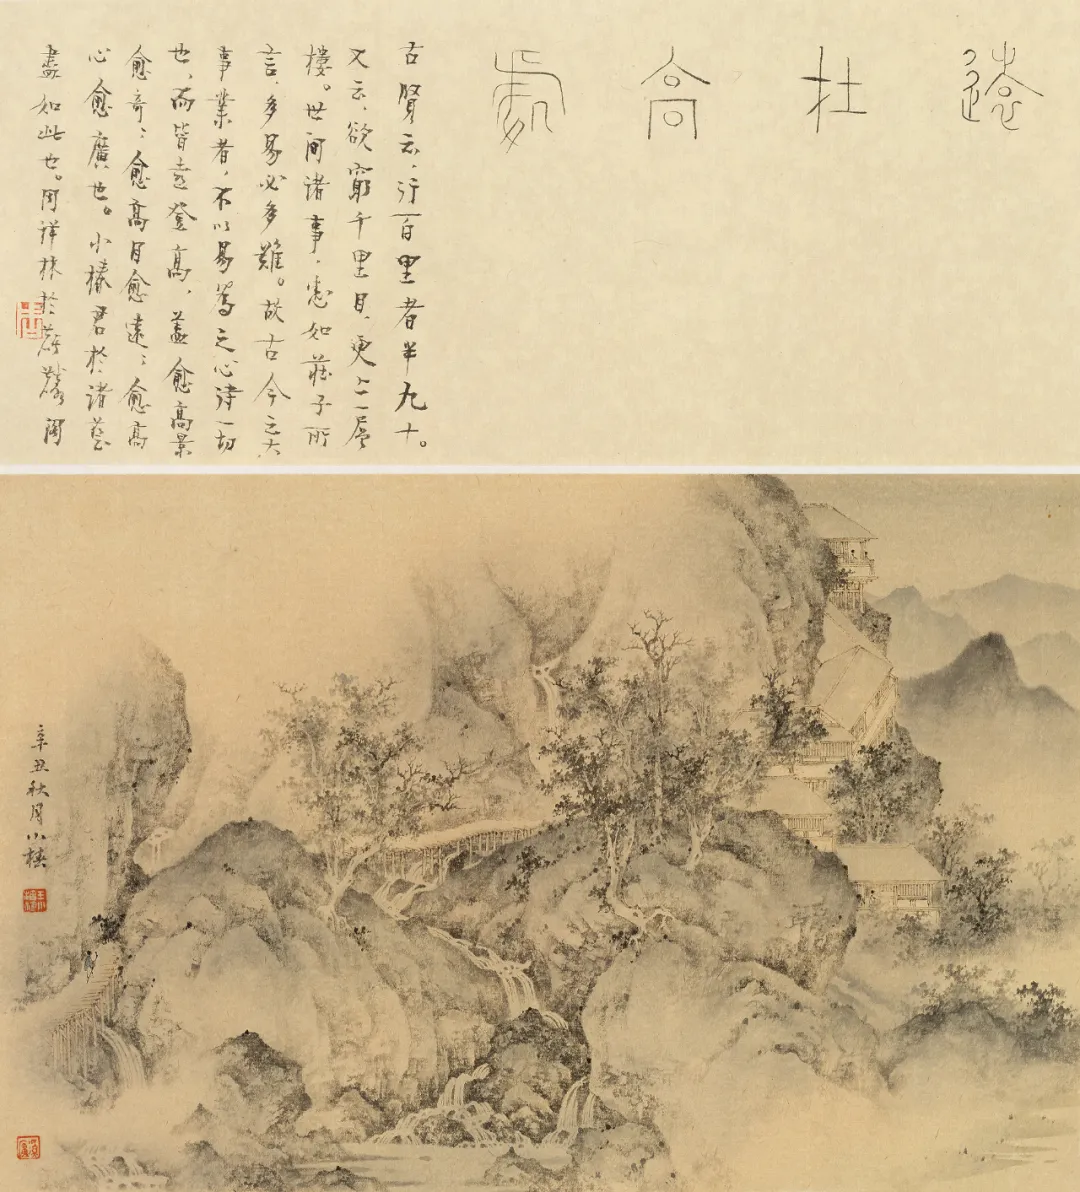 遠在高處
古賢云、行百里者半九十。
又云、欲窮千里目、更上一層
樓。世間諸事、悉如莊子所
言、多易必多難。故古今之大
事業者、不以易為之心待一切
也、而皆遠登高、蓋愈高景
愈奇、愈高目愈遠、愈高
心愈廣也。小椿君於諸藝
盡如此也。周祥林於閣
辛丑秋月小椿